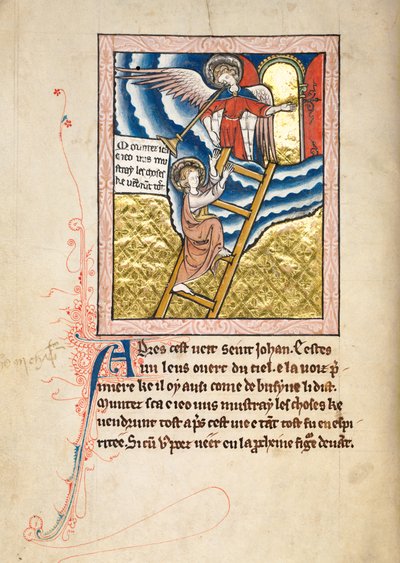 Mounter ici
e ieo vus mu
stray les choses
ke vendrunt tost
Apres cest veit seint Johan. Cestes
un leus overt du ciel. e la voiz p
miere ke il oy ausi come de busyne li dist.
Munter sca e ieo vus mustray les choses ke
vendrunt tost aps cest vie e tãt tost fu en espi
ritee. Si cũ le per veer en la pcheine fige devãt.